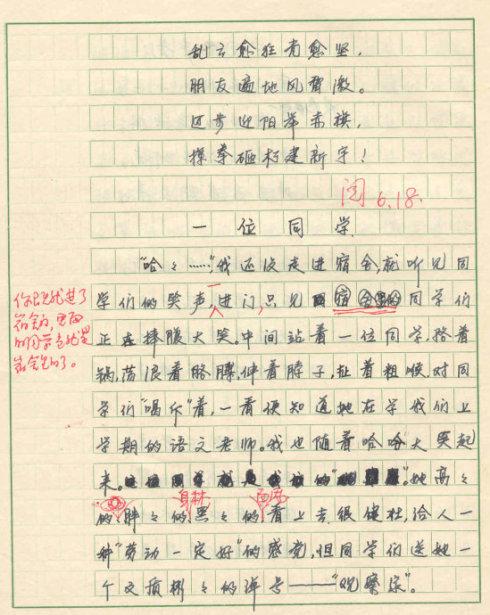 乱云愈狂志愈坚，
朋友遍地风雷激。
迈步迎阳举赤旗，
挥拳砸朽建新宇！
阅 6.18.
一位同学
"哈々……"我还没走进宿舍，就听见同
学们的笑声，进门，只见宿舍里的同学们
正在捧腹大笑。中间站着一位同学，
着胳膊，伸着脖子，扯着粗喉，对同
学们"喝斥"着，一看便知道她在学我们上
学期的语文老师。我也随着哈哈大笑起
来。她高々
的胖々的黑々的看上去很健壮，给人一
种"劳动一定好"的感觉，但同学们送她一
个文质彬々的浑号——"观察家"。
你既然进了
宿舍，里面
的同学当然是
宿舍里的了。
身材